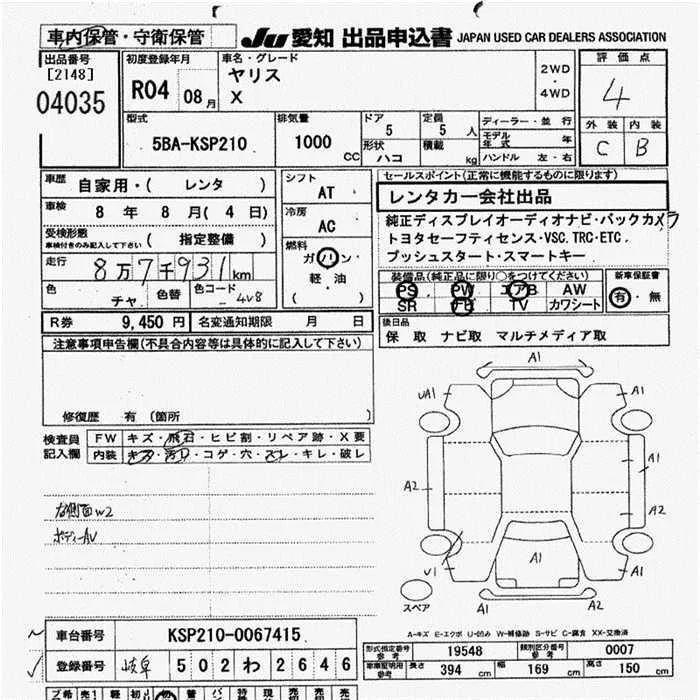 車内保管・守衛保管
JU 愛知 出品申込書 JAPAN USED CAR DEALERS ASSOCIATION
出品番号
[2148]
04035
初度登録年月
R04 08月
車名・グレード
ヤリス
X
2WD
・
4WD
評価点
4
外装 内装
C B
型式
5BA-KSP210
排気量
1000 CC
ドア
5
定員
5人
形状
ハコ
積載
kg
ディーラー・並行
モデル年式 年
ハンドル 左・右
車歴
自家用・( レンタ )
車検
8年 8月(4日)
受検形態
車検付きのみ記入して下さい
( 指定整備 )
走行
8万7千931km
色
チャ
色替
色コード
4V8
シフト
AT
冷房
AC
燃料
ガソリン・
軽・油
( )
セールスポイント(正常に機能するものに限ります)
レンタカー会社出品
純正ディスプレイオーディオナビ・バックカメラ
トヨタセーフティセンス・VSC.TRC・ETC.
プッシュスタート・スマートキー
装備品(純正品に限り○をつけてください)
PS PW エアB AW
SR TV カワシート
新車保証書
有・無
R券 9,450円
名変通知期限 月 日
後日品
保 取 ナビ取 マルチメディア取
注意事項申告欄(不具合内容等は具体的に記入して下さい)
修復歴 有(箇所 )
検査員
記入欄
FW キズ・飛石・ヒビ割・リペア跡・X要
内装 キズ・汚れ・コゲ・穴・スレ・キレ・破レ
右側面W2
ボディーAV
A1
UA1
A1
A1
A2
A2
V1
A1
A1
A1
A2
スペア
A-キズ E-エクボ U-凹み W-補修跡 S-サビ C-腐食 XX-交換済
車台番号 KSP210-0067415
登録番号 岐阜 502わ2646
型式指定番号 参考 19548
類別区分番号 参考 0007
車庫証明用 参考 長さ 394 cm 幅 169 cm 高さ 150 cm